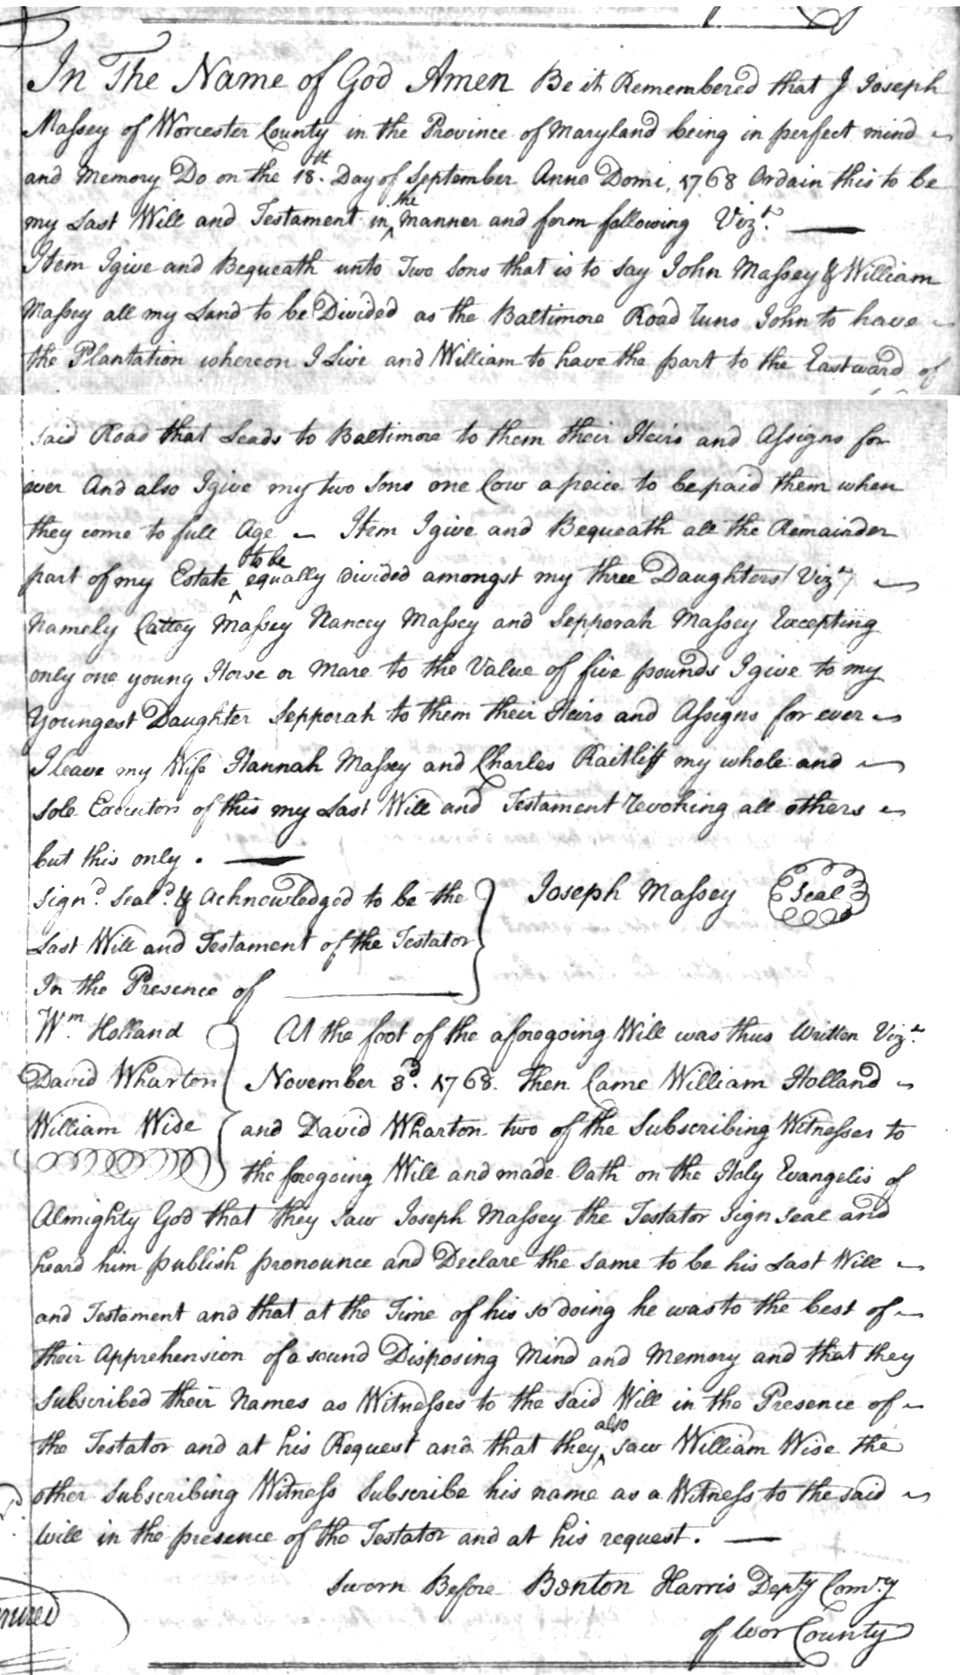 In The Name of God Amen Be it Remembered that I Joseph
Massey of Worcester County in the Province of Maryland being in perfect mind
and Memory Do on the 18.st Day of September Anno Domi, 1768 Ordain this to be
my Last Will and Testament in the manner and form following Vizt.
Item I give and Bequeath unto Two Sons that is to say John Massey & William
Massey all my Land to be Divided as the Baltimore Road Runs John to have
the Plantation whereon I Live and William to have the part to the Eastward of
said Road that Leads to Baltimore to them their Heirs and Assigns for
ever And also I give my two Sons one Cow a peice to be paid them when
they come to full Age Item I give and Bequeath all the Remainder
part of my Estate to be equally Divided amongst my three Daughters Vizt.
Namely Cattey Massey Nancey Massey and Sepporah Massey Excepting
only one young Horse or Mare to the Value of five pounds I give to my
Youngest Daughter Sepporah to them their Heirs and Assigns for ever
I leave my Wife Hannah Massey and Charles Raitliff my whole and
sole Executors of this my Last Will and Testament revoking all others
but this only.
Signd. Seald. & Acknowledged to be the Joseph Massey Seal
Last Will and Testament of the Testator
In the Presence of
Wm. Holland At the foot of the aforegoing Will was thus Written Vizt.
David Wharton November 3d. 1768. Then Came William Holland
William Wise and David Wharton two of the Subscribing Witnesses to
the foregoing Will and made Oath on the Holy Evangelis of
Almighty God that they saw Joseph Massey the Testator sign seal and
heard him publish pronounce and Declare the same to be his Last Will
and Testament and that at the Time of his so doing he was to the best of
their Apprehension of a sound Disposing Mind and Memory and that they
Subscribed their Names as Witnesses to the said Will in the Presence of
the Testator and at his Request and that they also saw William Wise the
other Subscribing Witness Subscribe his name as a Witness to the said
Will in the presence of the Testator and at his request.
Sworn Before Benton Harris Depty Comry
of Wor County